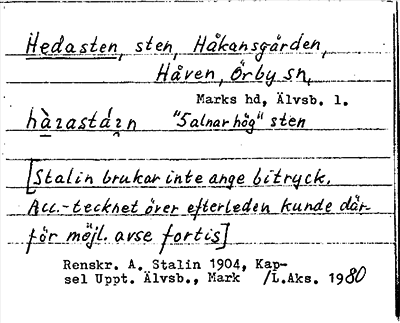 Hedasten, sten, Håkansgården,
Håven, Örby sn,
Marks hd, Älvsb. l.
hàrastáɲn "5 alnar hög" sten
[Stalin brukar inte ange bitryck.
Acc.-tecknet över efterleden kunde där-
för möjl. avse fortis]
Renskr. A. Stalin 1904, Kap-
sel Uppt. Älvsb., Mark /L.Aks. 1980